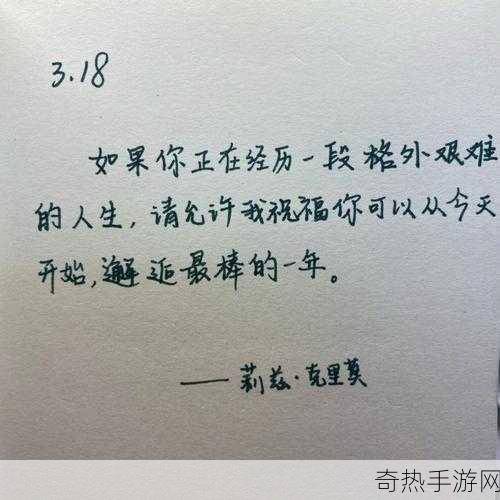 3.18
如果你正在经历一段格外艰难
的人生，请允许我祝福你可以从今天
开始，邂逅最棒的一年。
——莉兹·克里莫
奇热手游网